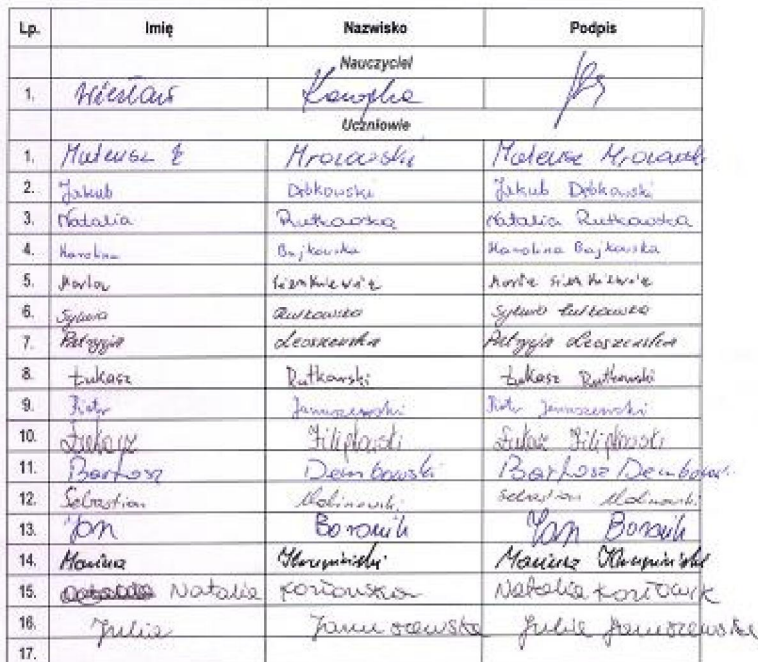 Lp. Imię Nazwisko Podpis
Nauczyciel
1. Wiesław Konopka
Uczniowie
1. Mateusz Mrozowski Mateusz Mrozowski
2. Jakub Dębkowski Jakub Dębkowski
3. Natalia Rutkowska Natalia Rutkowska
4. Karolina Bajkowska Karolina Bajkowska
5. Sienkiewicz Sienkiewicz
6. Sylwia Rutkowska Sylwia Rutkowska
7. Patrycja Leoszewska Patrycja Leoszewska
8. Łukasz Rutkowski Łukasz Rutkowski
9. Piotr Januszewski Piotr Januszewski
10. Łukasz Filipkowski Łukasz Filipkowski
11. Bartosz Dembowski Bartosz Dembowski
12. Sebastian Malinowski Sebastian Malinowski
13. Jan Borowik Jan Borowik
14. Mariusz Krupiński Mariusz Krupiński
15. Natalia Kozłowska Natalia
16. Julia Januszewska Julia Januszewska
17.